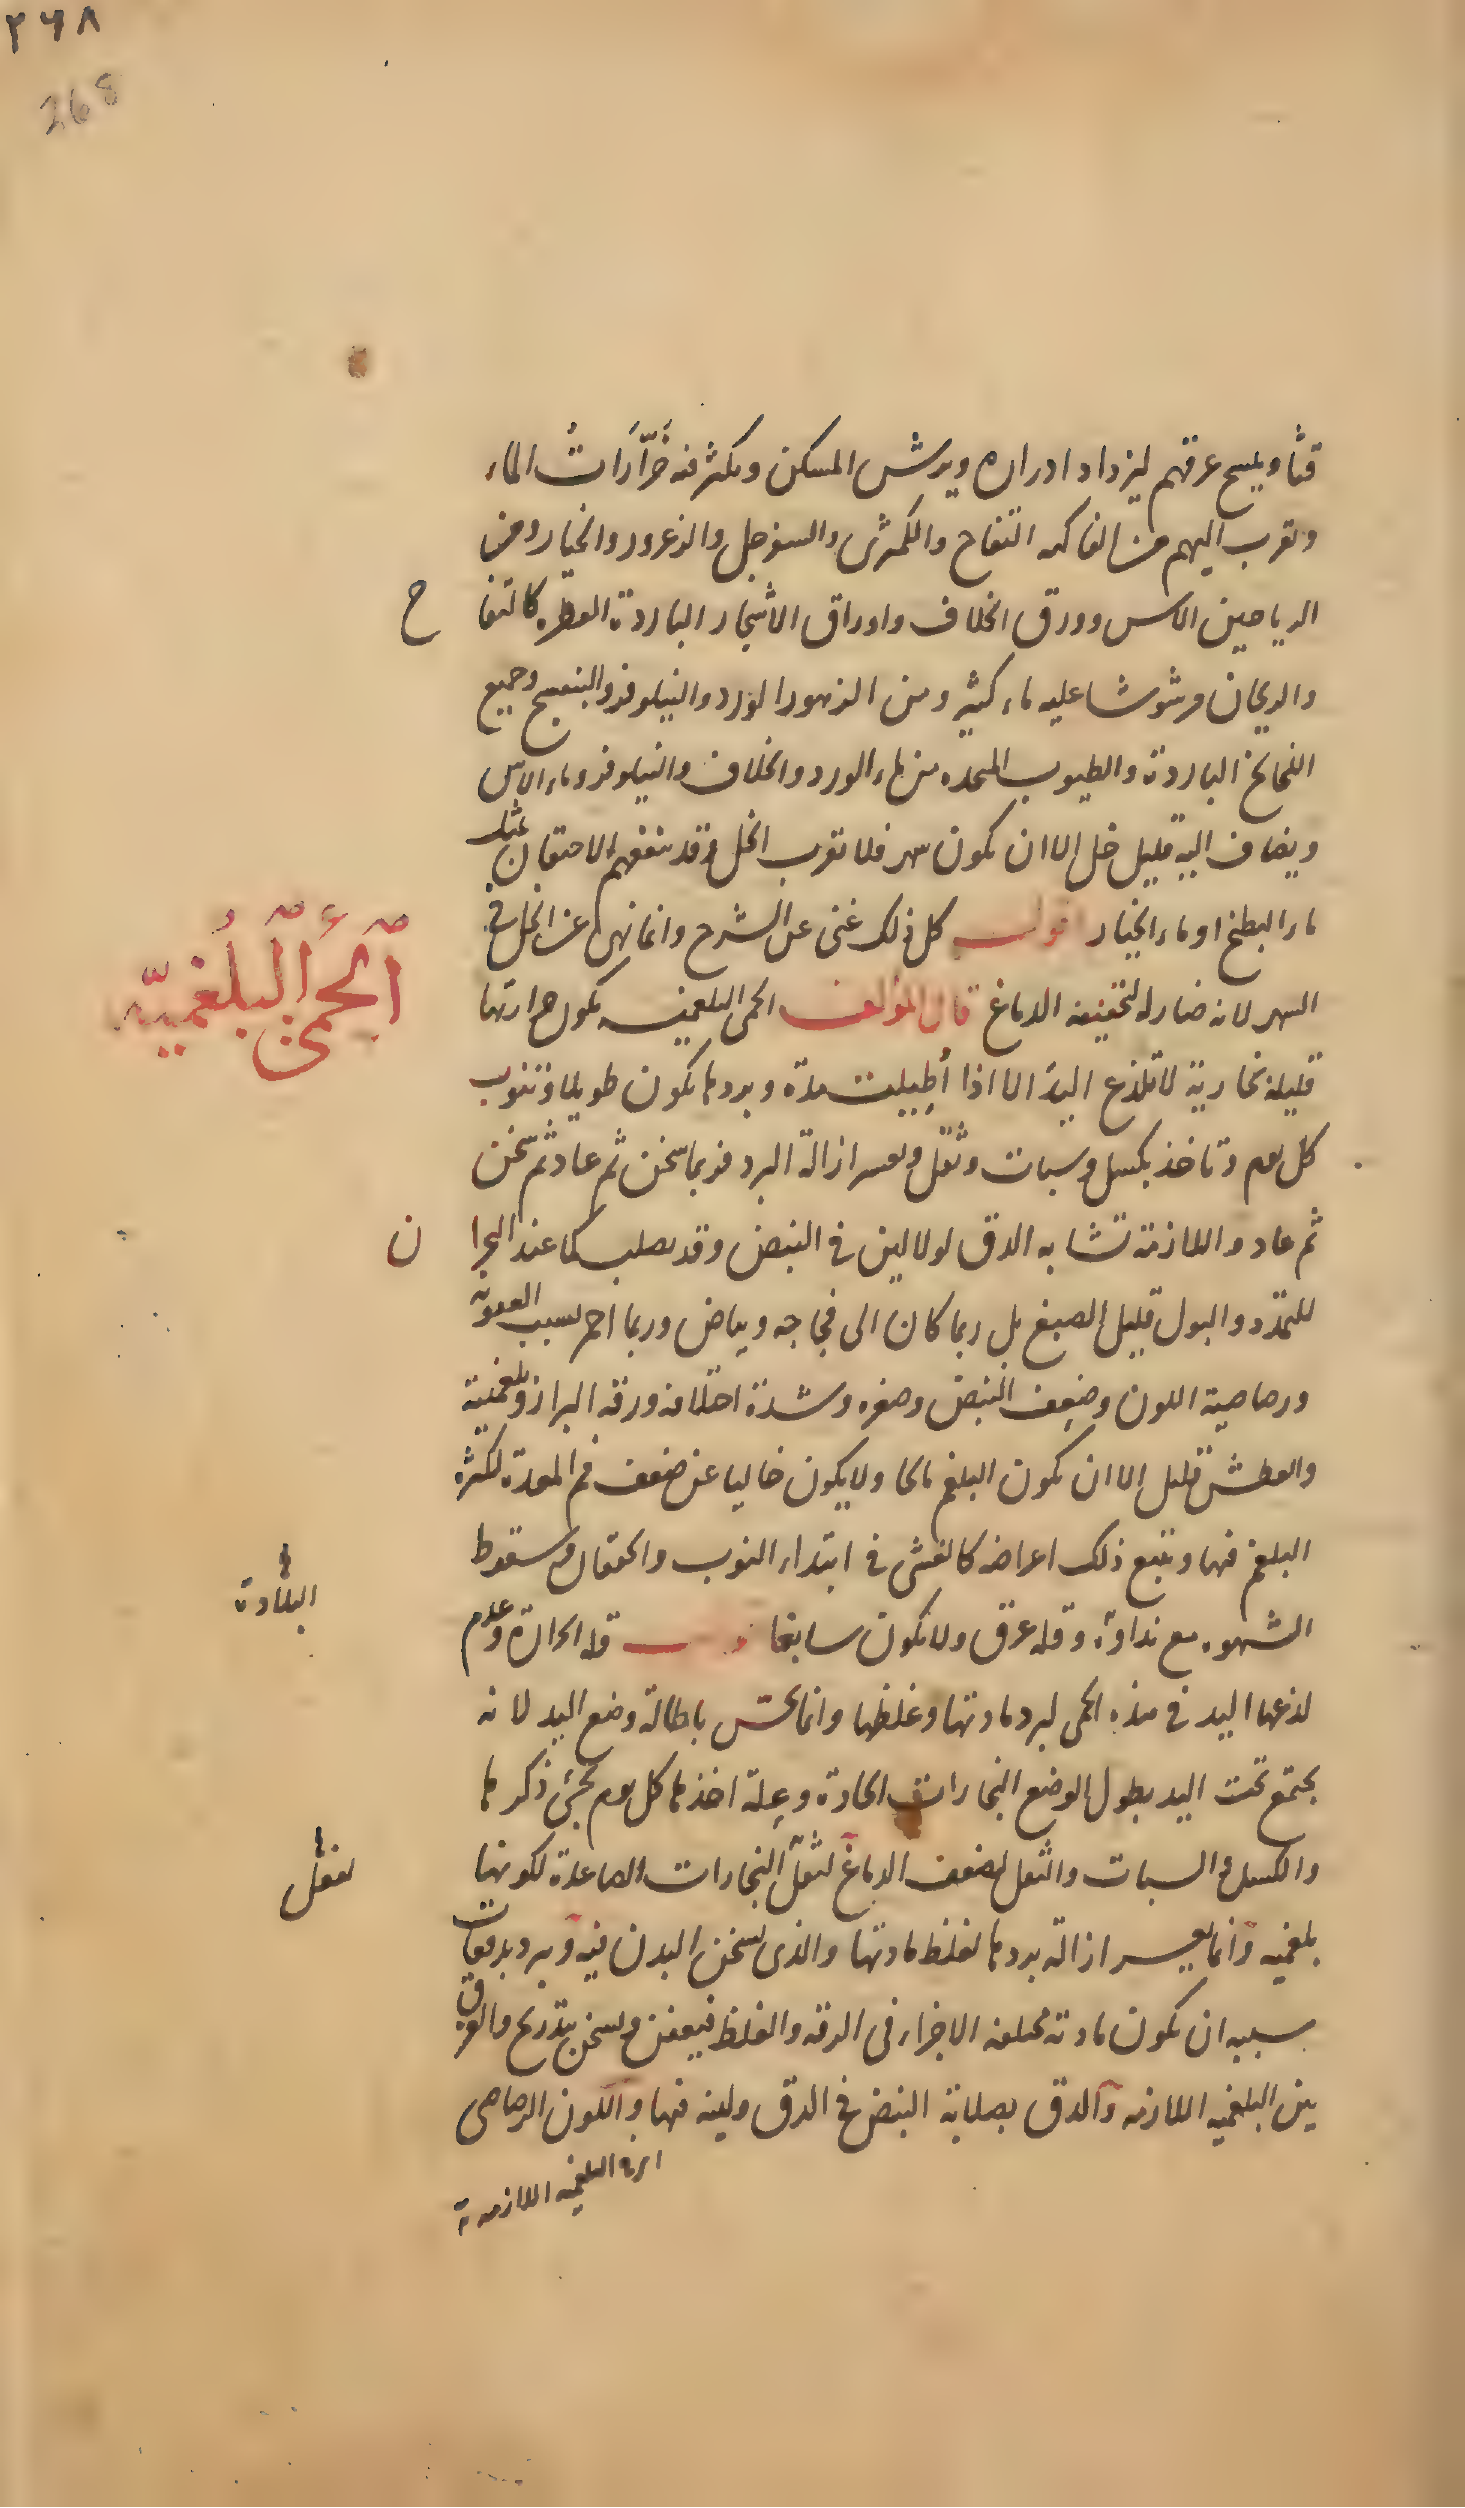 ٢٦٨
268
قثاً ويمسح عرقهم ليزداد ادراره ويرش المسكن ويكثر فيه خَرَّارَاتُ الماء
وتقرب اليهم من الفاكهه التفاح والكمثرى والسفرجل والزعرور والخيار ومن
الرياحين الاس وورق الخلاف واوراق الاشجار الباردة العطره كالتفا
ح
والريحان مرشوشا عليه ماء كثير ومن الزهور الورد والنيلوفر والبنفسج وجميع
اللخالخ الباردة والطيوب المتخذه من ماء الورد والخلاف والنيلوفر وماء الاس
ويضاف اليه قليل خل الا ان يكون سهر فلا تقرب الخل وقد ينفعهم الاحتقان بمثل
ماء البطيخ او ماء الخيار اقول كل ذلك غنى عن الشرح وانما نهى عن الخل فى
السهر لانه ضار له لتجفيفه الدماغ قال المؤلف الحمى البلغميه يكون حرارتها
اَلْحُمَّى الْبَلْغَمِيَّه
قليلة بخارية لا تلذع اليد الا اذا أطيلت مدة وبردها يكون طويلا وتنوب
كل يوم وتاخذ بكسل وسبات وثقل ويعسر ازالة البرد فربما سخن ثم عاد ثم سخن
ثم عاد واللازمة تشابه الدق لولا لين فى النبض وقد يصلب كما عند البحرا
ن
للتمدد والبول قليل الصبغ بل ربما كان الى فجاجه وبياض وربما احمر بسبب العفونه
ورصاصية اللون وضعف النبض وصغره وشدة اختلافه ورقه البراز وبلغميته
والعطش قليل الا ان يكون البلغم مالحا ولا يكون خاليا عن ضعف فم المعدة لكثرة
البلغم فيها ويتبع ذلك اعراضه كالغشى فى ابتداء النوب والخفقان وسقوط
الشهوه مع نداوة وقله عرق ولا يكون سابغا قله الحرارة وعدم
البلادة
لذعها اليد فى هذه الحمى لبرد مادتها وغلظها وانما يحس باطالة وضع اليد لانه
يجتمع تحت اليد بطول الوضع البخارات الحادة وعلة اخذها كل يوم يجئ ذكرها
والكسل والسبات والثقل لضعف الدماغ لثقل البخارات الصاعدة لكونها
بلغميه وانما يعسر ازالة بردها لغلظ مادتها والذى يسخن البدن فيه ويبرد بدفعات
سببه ان يكون مادته مختلفه الاجزاء فى الرقه والغلظ فيعفن ويسخن بتدريج والفرق
بين البلغميه اللازمه والدق بصلابة النبض فى الدق ولينه فيها واللون الرصاصى
البلغميه اللازمة